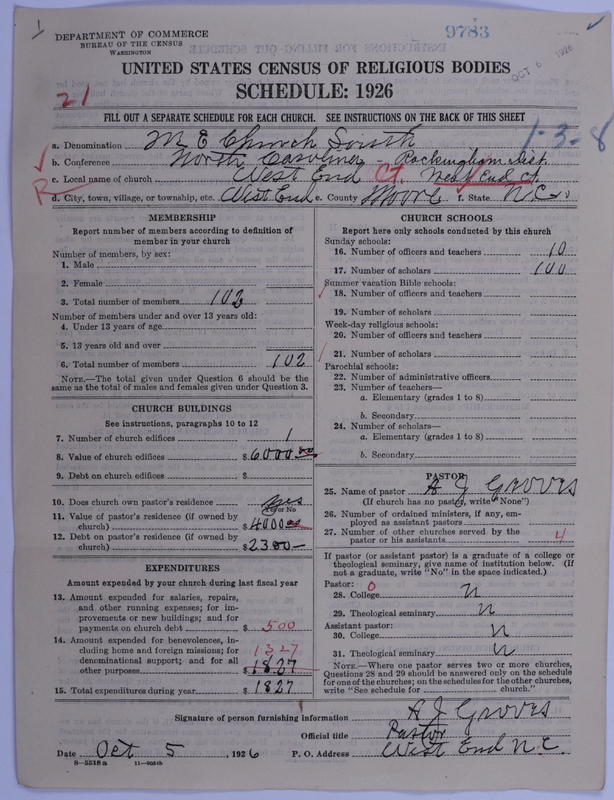 DEPARTMENT OF COMMERCE
BUREAU OF THE CENSUS
WASHINGTON
9783
OCT 6 1926
UNITED STATES CENSUS OF RELIGIOUS BODIES
SCHEDULE: 1926
21
FILL OUT A SEPARATE SCHEDULE FOR EACH CHURCH. SEE INSTRUCTIONS ON THE BACK OF THIS SHEET
1-3-8
a. Denomination M E Church South
b. Conference North Carolina - Rockingham Dist
c. Local name of church West End Ct. West End Ct.
R
d. City, town, village, or township, etc. West End e. County Moore f. State N.C.
MEMBERSHIP
Report number of members according to definition of
member in your church
Number of members, by sex:
1. Male
2. Female
3. Total number of members 102
Number of members under and over 13 years old:
4. Under 13 years of age
5. 13 years old and over
6. Total number of members 102
NOTE.—The total given under Question 6 should be
the same as the total of males and females given under Question 3.
CHURCH BUILDINGS
See instructions, paragraphs 10 to 12
7. Number of church edifices 1
8. Value of church edifices $ 6000.00
9. Debt on church edifices $
10. Does church own pastor's residence yes
Yes or No
11. Value of pastor's residence (if owned by
church) $ 4000.00
12. Debt on pastor's residence (if owned by
church) $ 2300—
EXPENDITURES
Amount expended by your church during last fiscal year
13. Amount expended for salaries, repairs,
and other running expenses; for im-
provements or new buildings; and for
payments on church debt $ 500
14. Amount expended for benevolences, in-
cluding home and foreign missions; for
denominational support; and for all
other purposes $ 1827
1327
15. Total expenditures during year $ 1827
CHURCH SCHOOLS
Report here only schools conducted by this church
Sunday schools:
16. Number of officers and teachers 10
17. Number of scholars 100
Summer vacation Bible schools:
18. Number of officers and teachers
19. Number of scholars
Week-day religious schools:
20. Number of officers and teachers
21. Number of scholars
Parochial schools:
22. Number of administrative officers
23. Number of teachers—
a. Elementary (grades 1 to 8)
b. Secondary
24. Number of scholars—
a. Elementary (grades 1 to 8)
b. Secondary
PASTOR
25. Name of pastor A J Groves
(If church has no pastor, write "None")
26. Number of ordained ministers, if any, em-
ployed as assistant pastors
27. Number of other churches served by the
pastor or his assistants 4
If pastor (or assistant pastor) is a graduate of a college or
theological seminary, give name of institution below. (If
not a graduate, write "No" in the space indicated.)
Pastor: 0
28. College n
29. Theological seminary n
Assistant pastor:
30. College n
31. Theological seminary n
NOTE.—Where one pastor serves two or more churches,
Questions 28 and 29 should be answered only on the schedule
for one of the churches; on the schedules for the other churches,
write "See schedule for church."
Signature of person furnishing information A J Groves
Official title Pastor
Date Oct 5, 1926 P. O. Address West End N.C.
8-5518a 11-9051b